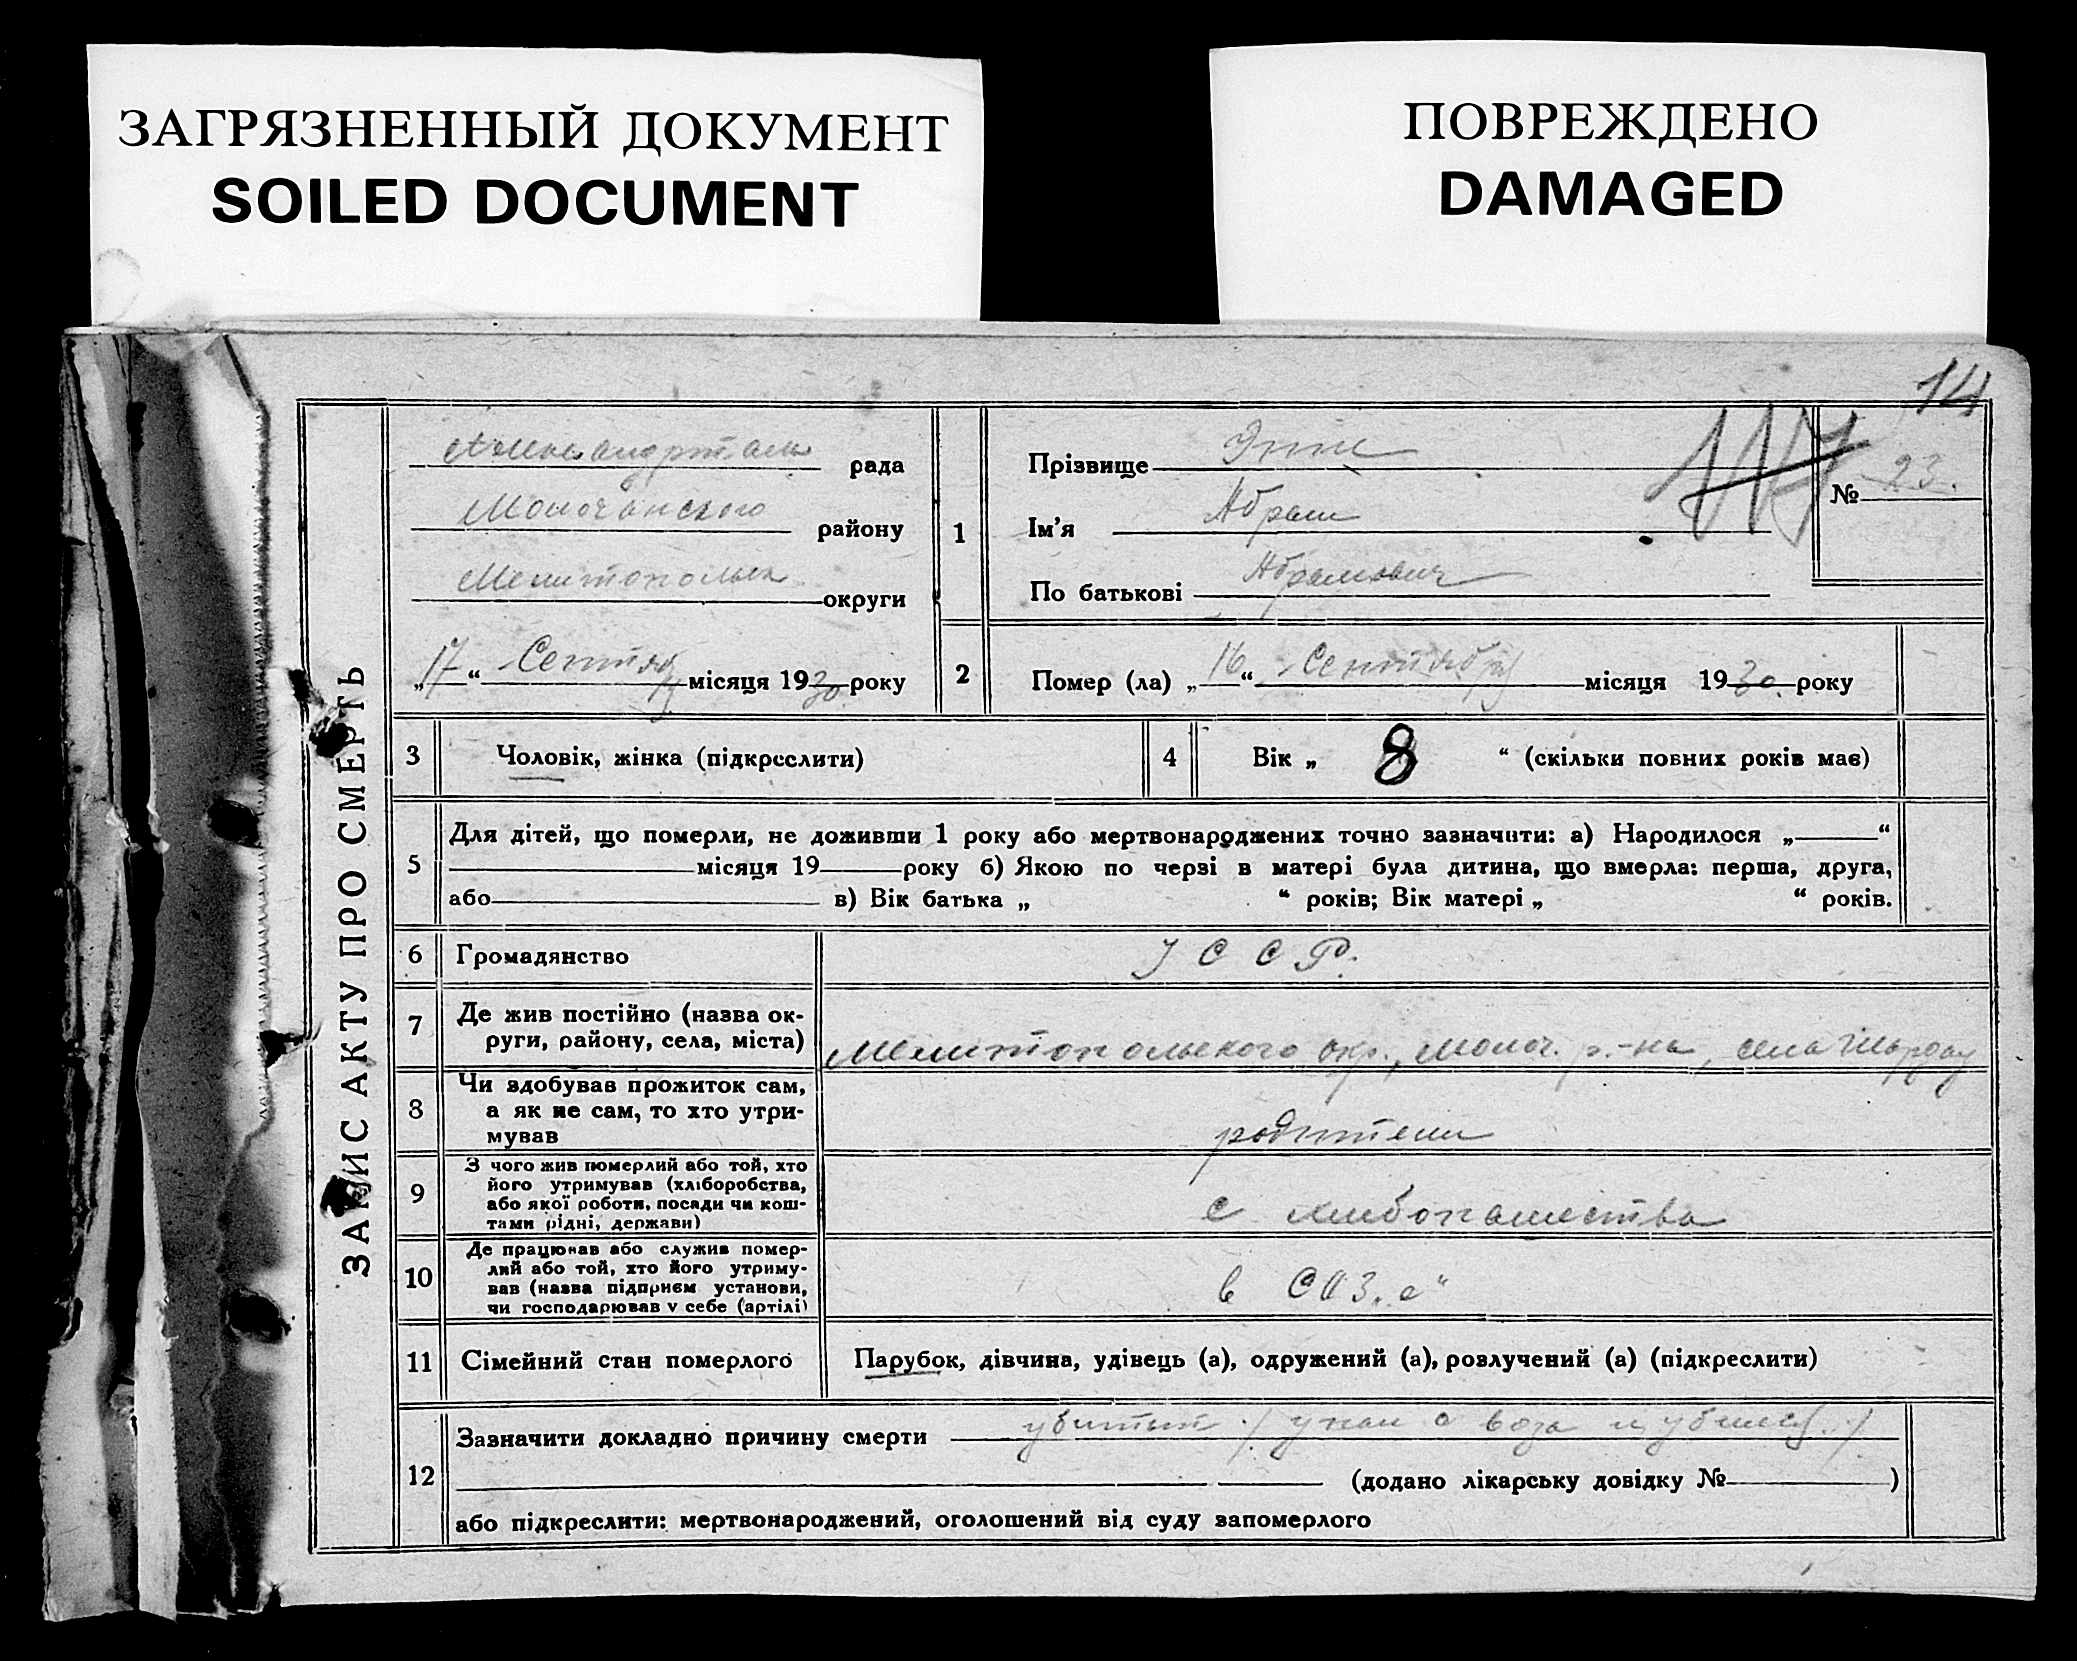 ЗАГРЯЗНЕННЫЙ ДОКУМЕНТ
SOILED DOCUMENT
ПОВРЕЖДЕНО
DAMAGED
14
ЗАПИС АКТУ ПРО СМЕРТЬ
Александрталь рада
Молочанского району
Мелитопольск округи
„17“ Сентябр місяця 1930 року
1
Прізвище Эпп
Ім'я Абрам
По батькові Абрамович
№ 23.
2 Помер (ла) „16“ Сентября місяця 1930 року
3 Чоловік, жінка (підкреслити)
4 Вік „ 8 “ (скільки повних років має)
5 Для дітей, що померли, не доживши 1 року або мертвонароджених точно зазначити: а) Народилося „ “
місяця 19 року б) Якою по черзі в матері була дитина, що вмерла: перша, друга,
або в) Вік батька „ “ років; Вік матері „ “ років.
6 Громадянство У С С Р.
7 Де жив постійно (назва ок-
руги, району, села, міста) Мелитопольского окр., Молоч. р.-на, села
8 Чи здобував прожиток сам,
а як не сам, то хто утри-
мував родители
9 З чого жив померлий або той, хто
його утримував (хліборобства,
або якої роботи, посади чи кош-
тами рідні, держави) с хлибопашества
10 Де працював або служив помер-
лий або той, хто його утриму-
вав (назва підприєм установи,
чи господарював у себе (артілі) в СОЗ.е“
11 Сімейний стан померлого Парубок, дівчина, удівець (а), одружений (а), розлучений (а) (підкреслити)
12 Зазначити докладно причину смерти убитый /упал с воза и убился/
(додано лікарську довідку № )
або підкреслити: мертвонароджений, оголошений від суду запомерлого